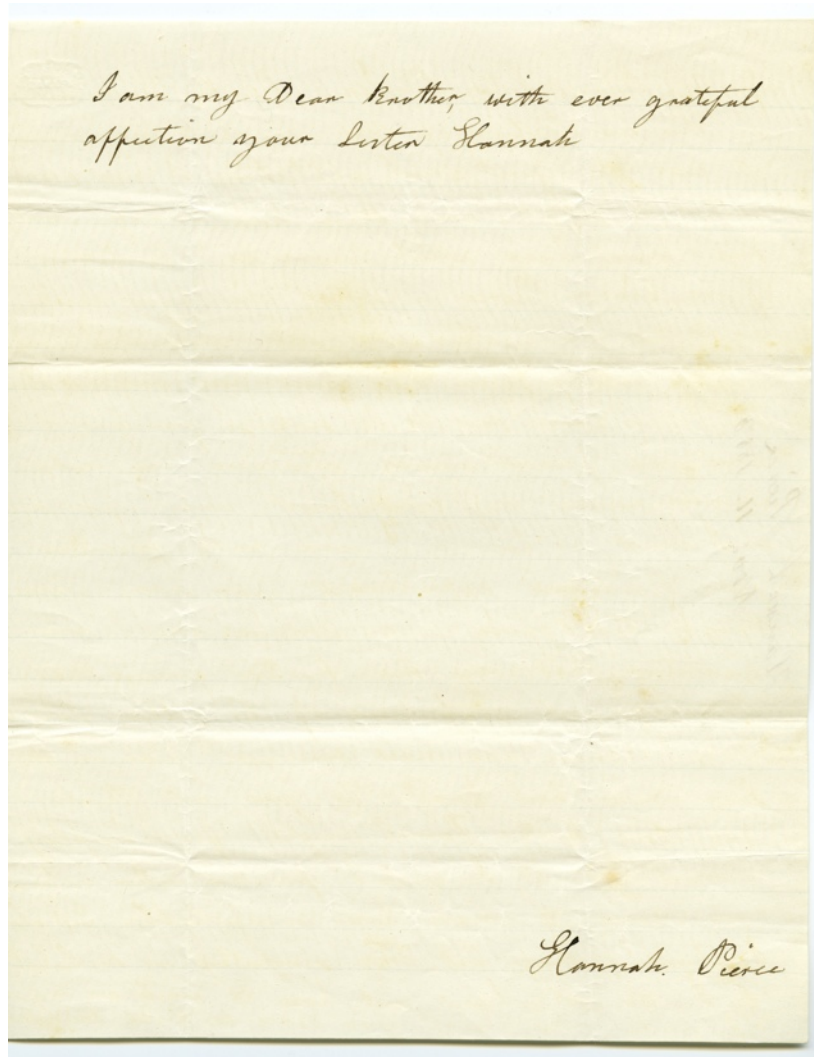 I am my Dear Brother, with ever grateful
affection your Sister Hannah
Hannah. Pierce